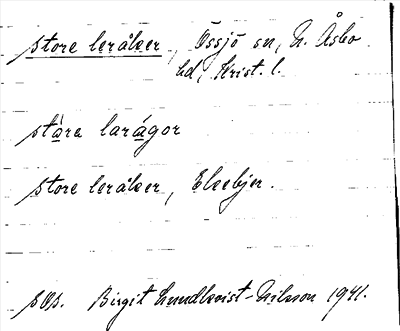 store leråker, Össjö sn, N. Åsbo
hd, Krist. l.
stāra larágor
store leråker, Ekebjer.
Birgit Lundkvist-Nilsson 1941.